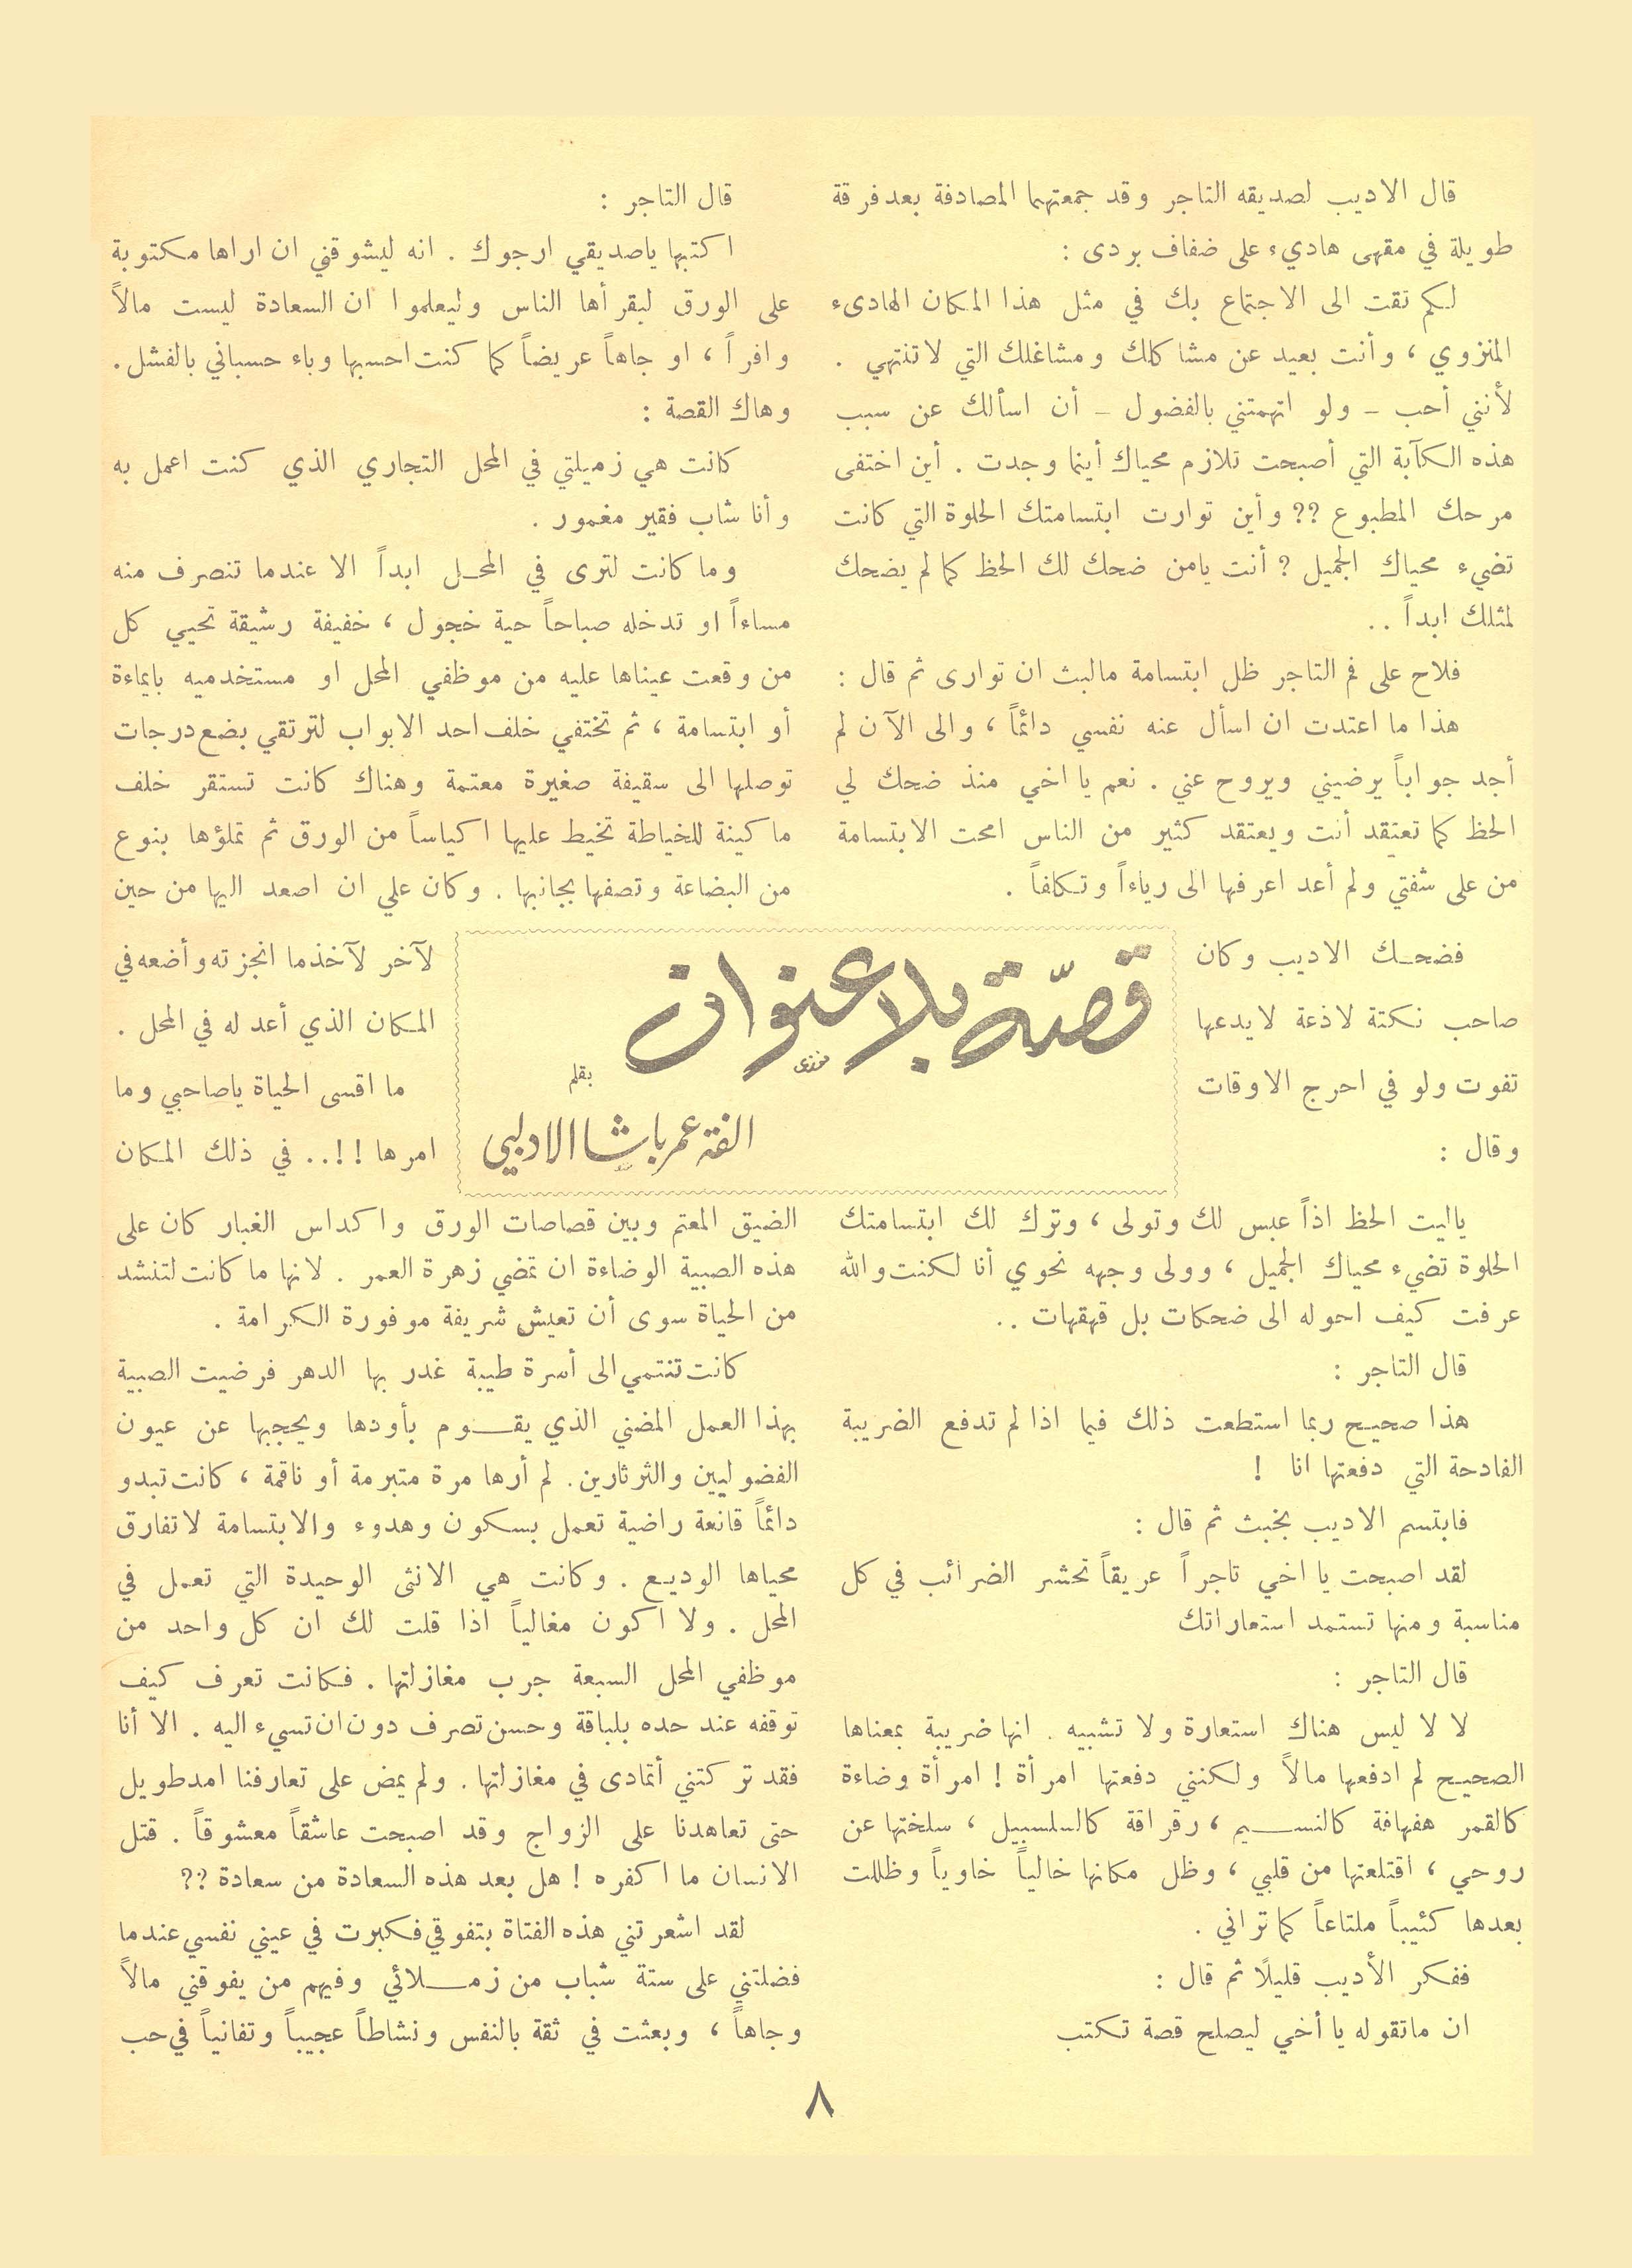 قصّة بلا عنوان
فوزي
بقلم
الفة عمر باشا الادلبي
قال الاديب لصديقه التاجر وقد جمعتهما المصادفة بعد فرقة
طويلة في مقهى هاديء على ضفاف بردى :
لكم تقت الى الاجتماع بك في مثل هذا المكان الهادىء
المنزوي ، وأنت بعيد عن مشاكلك ومشاغلك التي لا تنتهي .
لأنني أحب – ولو اتهمتني بالفضول – أن اسألك عن سبب
هذه الكآبة التي أصبحت تلازم محياك أينما وجدت . أين اختفى
مرحك المطبوع ?? وأين توارت ابتسامتك الحلوة التي كانت
تضيء محياك الجميل ? أنت يامن ضحك لك الحظ كما لم يضحك
لمثلك ابداً ..
فلاح على فم التاجر ظل ابتسامة مالبث ان توارى ثم قال :
هذا ما اعتدت ان اسأل عنه نفسي دائماً ، والى الآن لم
أجد جواباً يرضيني ويروح عني . نعم يا اخي منذ ضحك لي
الحظ كما تعتقد أنت ويعتقد كثير من الناس امحت الابتسامة
من على شفتي ولم أعد اعرفها الى رياءاً وتكلفاً .
فضحك الاديب وكان
صاحب نكتة لاذعة لايدعها
تفوت ولو في احرج الاوقات
وقال :
ياليت الحظ اذاً عبس لك وتولى ، وترك لك ابتسامتك
الحلوة تضيء محياك الجميل ، وولى وجهه نحوي أنا لكنت والله
عرفت كيف احوله الى ضحكات بل قهقهات ..
قال التاجر :
هذا صحيح ربما استطعت ذلك فيما اذا لم تدفع الضريبة
الفادحة التي دفعتها انا !
فابتسم الاديب بخبث ثم قال :
لقد اصبحت يا اخي تاجراً عريقاً تحشر الضرائب في كل
مناسبة ومنها تستمد استعاراتك
قال التاجر :
لا لا ليس هناك استعارة ولا تشبيه . انها ضريبة بمعناها
الصحيح لم ادفعها مالاً ولكنني دفعتها امرأة ! امرأة وضاءة
كالقمر هفهافة كالنسيم ، رقراقة كالسلسبيل ، سلختها عن
روحي ، اقتلعتها من قلبي ، وظل مكانها خالياً خاوياً وظللت
بعدها كئيباً ملتاعاً كما تراني .
ففكر الأديب قليلاً ثم قال :
ان ماتقوله يا أخي ليصلح قصة تكتب
قال التاجر :
اكتبها ياصديقي ارجوك . انه ليشوقني ان اراها مكتوبة
على الورق ليقرأها الناس وليعلموا ان السعادة ليست مالاً
وافراً ، او جاهاً عريضاً كما كنت احسبها وباء حسباني بالفشل .
وهاك القصة :
كانت هي زميلتي في المحل التجاري الذي كنت اعمل به
وأنا شاب فقير مغمور .
وما كانت لترى في المحل ابداً الا عندما تنصرف منه
مساءاً او تدخله صباحاً حية خجول ، خفيفة رشيقة تحيي كل
من وقعت عيناها عليه من موظفي المحل او مستخدميه بايماءة
أو ابتسامة ، ثم تختفي خلف احد الابواب لترتقي بضع درجات
توصلها الى سقيفة صغيرة معتمة وهناك كانت تستقر خلف
ماكينة للخياطة تخيط عليها اكياساً من الورق ثم تملؤها بنوع
من البضاعة وتصفها بجانبها . وكان علي ان اصعد اليها من حين
لآخر لآخذ ما انجزته وأضعه في
المكان الذي أعد له في المحل .
ما اقسى الحياة ياصاحبي وما
امرها !!.. في ذلك المكان
الضيق المعتم وبين قصاصات الورق واكداس الغبار كان على
هذه الصبية الوضاءة ان تمضي زهرة العمر . لانها ما كانت لتنشد
من الحياة سوى أن تعيش شريفة موفورة الكرامة .
كانت تنتمي الى أسرة طيبة غدر بها الدهر فرضيت الصبية
بهذا العمل المضني الذي يقوم بأودها ويحجبها عن عيون
الفضوليين والثرثارين . لم أرها مرة متبرمة أو ناقمة ، كانت تبدو
دائماً قانعة راضية تعمل بسكون وهدوء والابتسامة لا تفارق
محياها الوديع . وكانت هي الانثى الوحيدة التي تعمل في
المحل . ولا اكون مغالياً اذا قلت لك ان كل واحد من
موظفي المحل السبعة جرب مغازلتها . فكانت تعرف كيف
توقفه عند حده بلباقة وحسن تصرف دون ان تسيء اليه . الا أنا
فقد تركتني أتمادى في مغازلتها . ولم يمض على تعارفنا امد طويل
حتى تعاهدنا على الزواج وقد اصبحت عاشقاً معشوقاً . قتل
الانسان ما اكفره ! هل بعد هذه السعادة من سعادة ??
لقد اشعرتني هذه الفتاة بتفوقي فكبرت في عيني نفسي عندما
فضلتني على ستة شباب من زملائي وفيهم من يفوقني مالاً
وجاهاً ، وبعثت في ثقة بالنفس ونشاطاً عجيباً وتفانياً في حب
٨